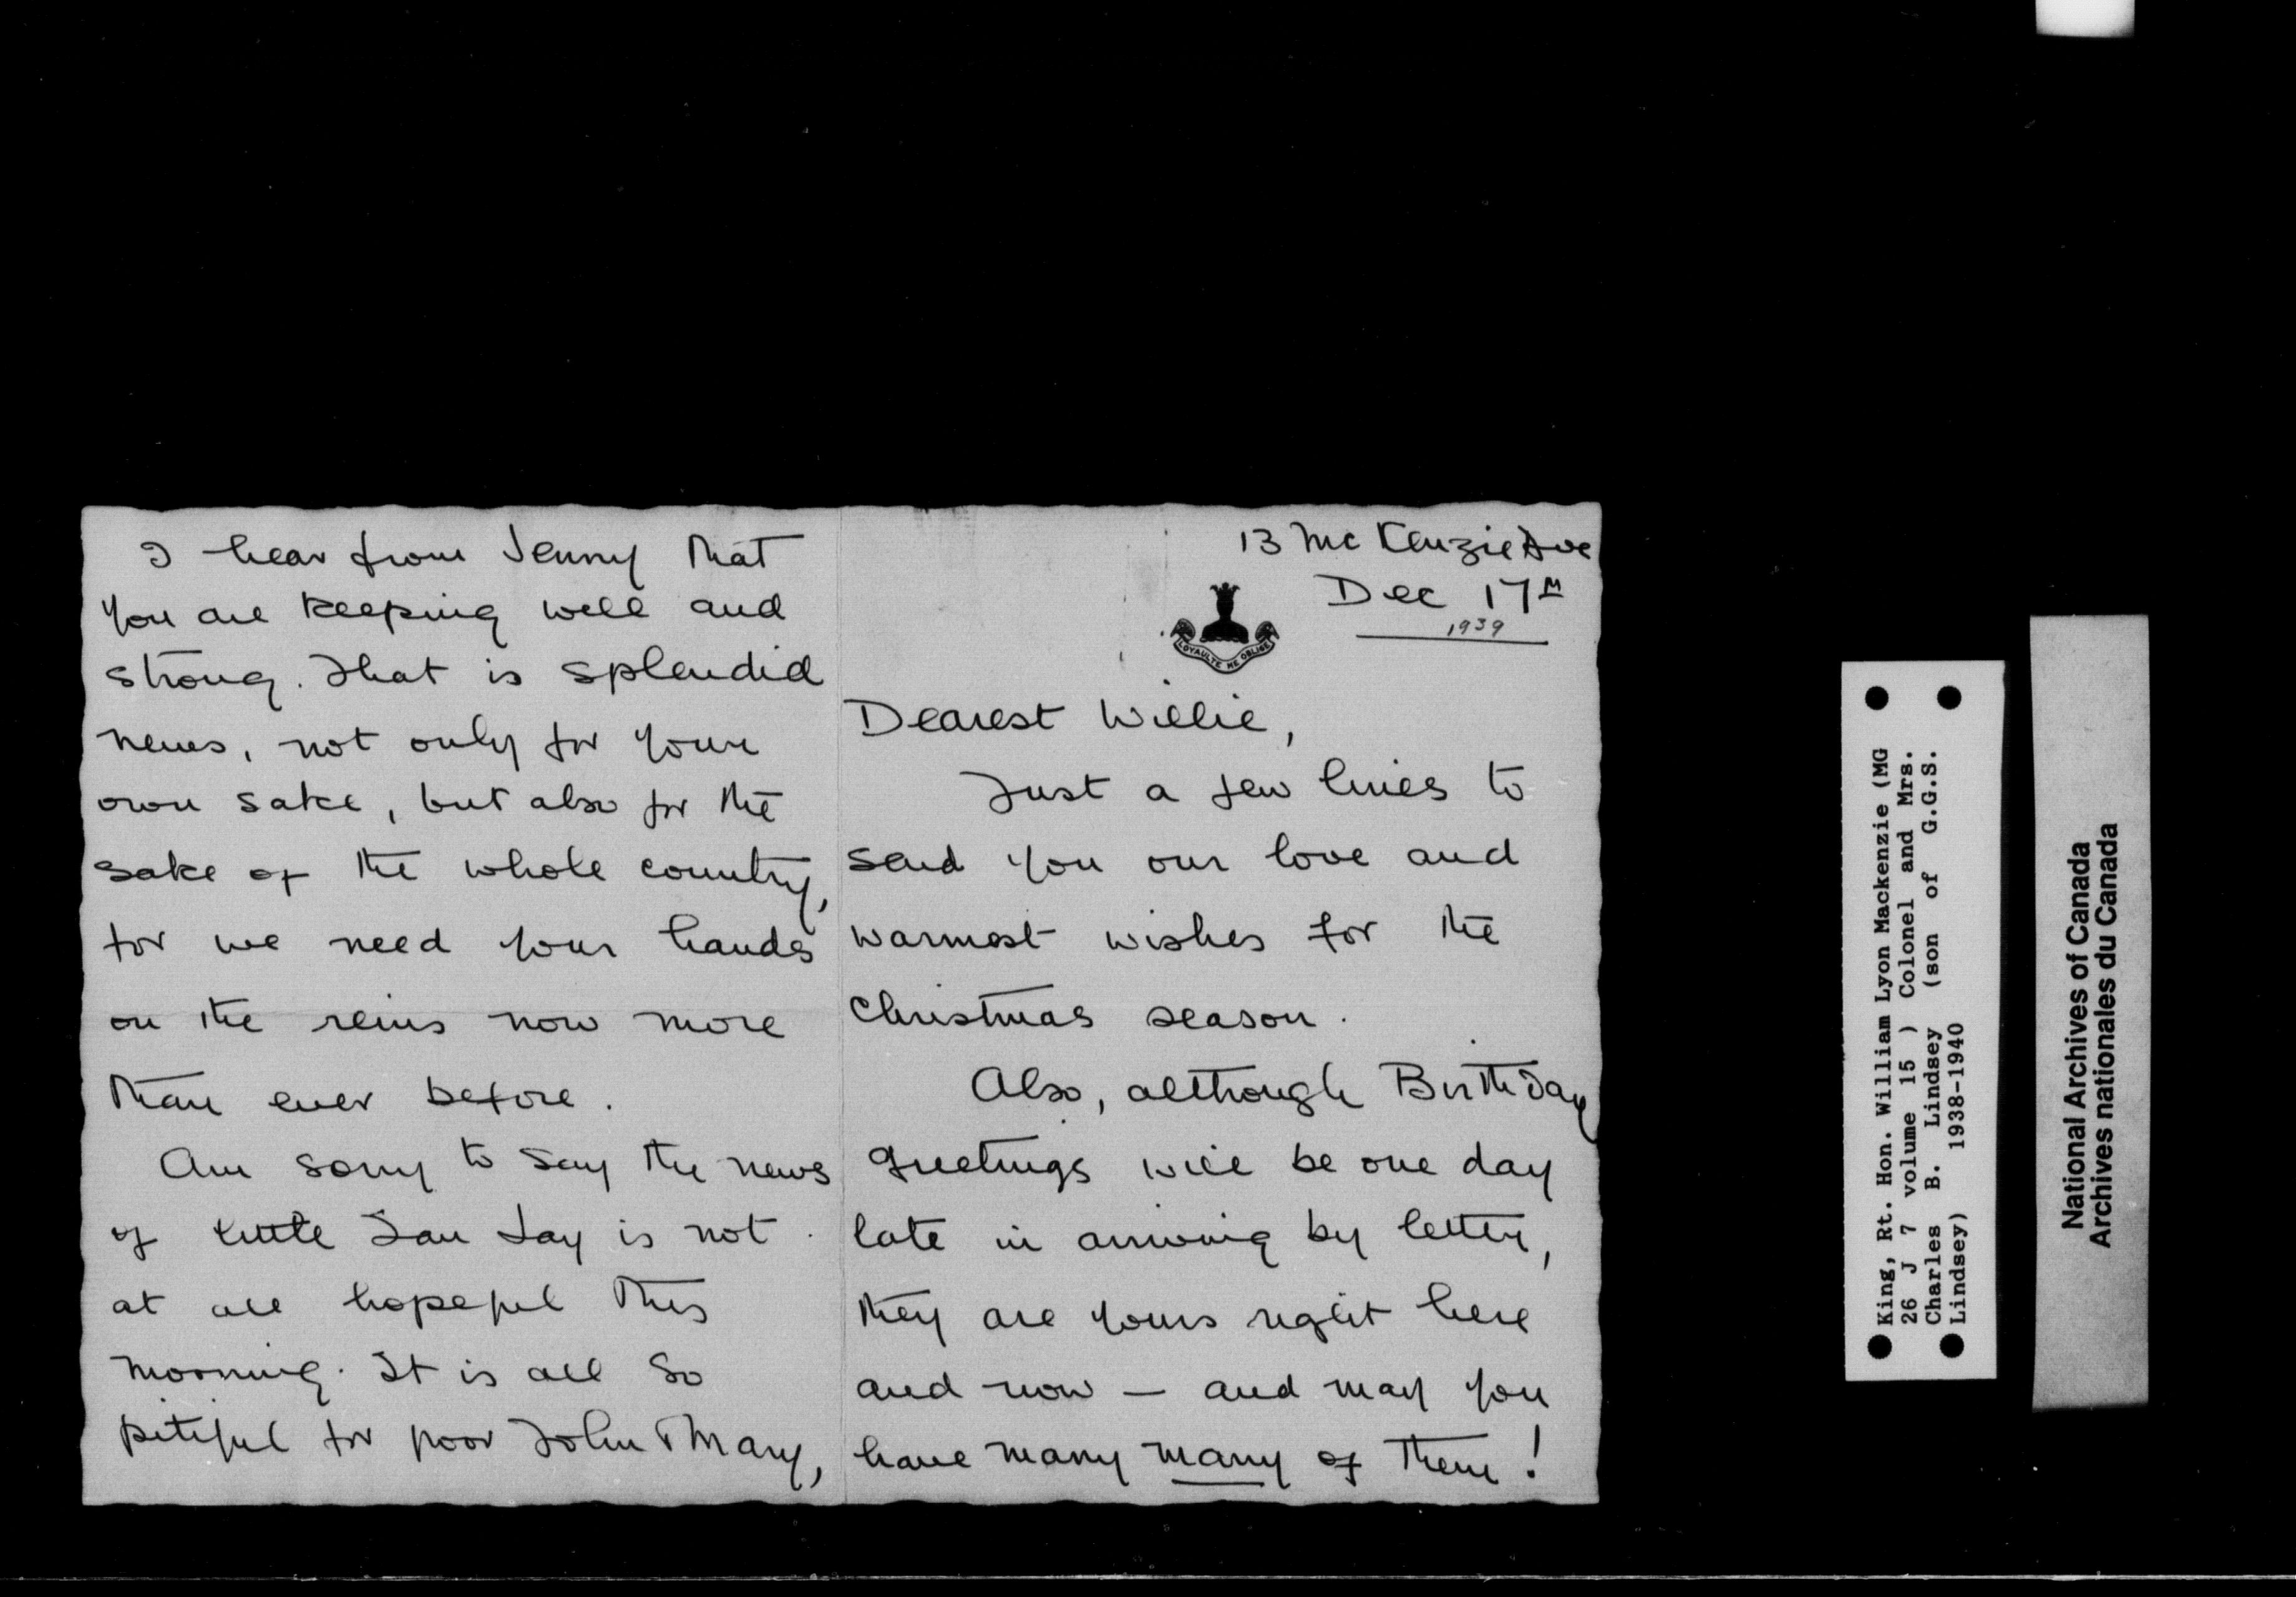 13 McKenzie Ave
Dec 17th
1939
LOYAULTE ME OBLIGE
Dearest Willie,
Just a few lines to
send you our love and
warmest wishes for the
Christmas season.
Also, although Birthday
greetings will be one day
late in arriving by letter,
they are yours right here
and now — and may you
have many many of them!
I hear from Jenny that
you are keeping well and
strong. That is splendid
news, not only for your
own sake, but also for the
sake of the whole country,
for we need your hands
on the reins now more
than ever before.
Am sorry to say the news
of little Ian Lay is not
at all hopeful this
morning. It is all so
pitiful for poor John & Mary,
King, Rt. Hon. William Lyon Mackenzie (MG
26 J 7 volume 15 ) Colonel and Mrs.
Charles B. Lindsey (son of G.G.S.
Lindsey) 1938-1940
National Archives of Canada
Archives nationales du Canada